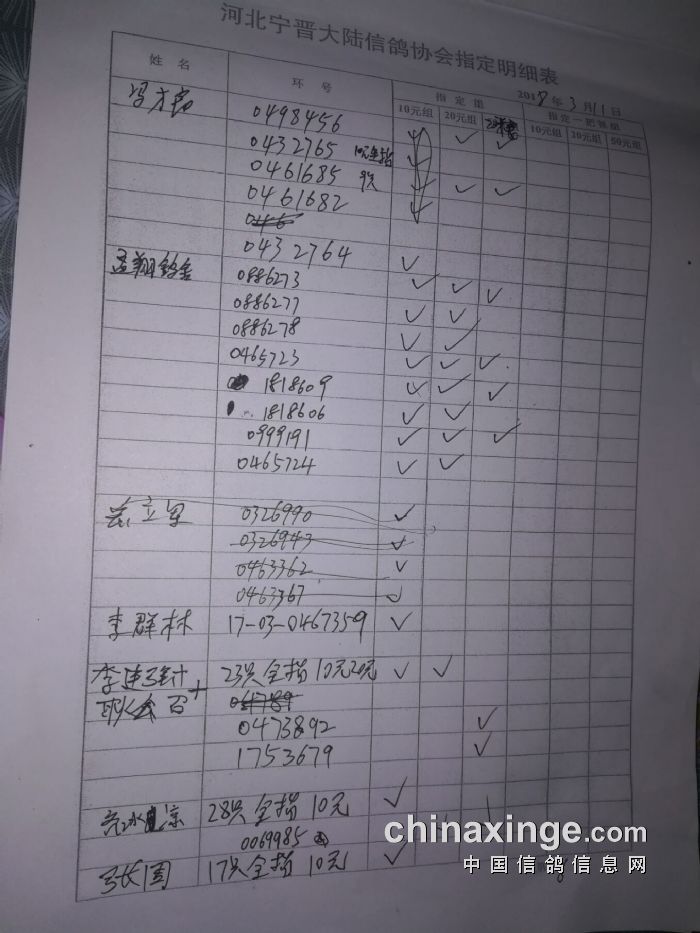 河北宁晋大陆信鸽协会指定明细表
2018年3月11日
姓 名 环 号 指 定 组 指定一把领组
10元组 20元组 10元组 20元组 50元组
0498456
0432765 10元全指
0461685 9只
0461682
0432764
0886273
0886277
0886278
0465723
1818609
1818606
0999191
0465724
0326990
0326943
0463362
0463367
李群林 17-03-0467359
23只全指10元20元
0473892
1753679
28只全指10元
0069985
张周 17只全指10元
chinaxinge.com
中国信鸽信息网